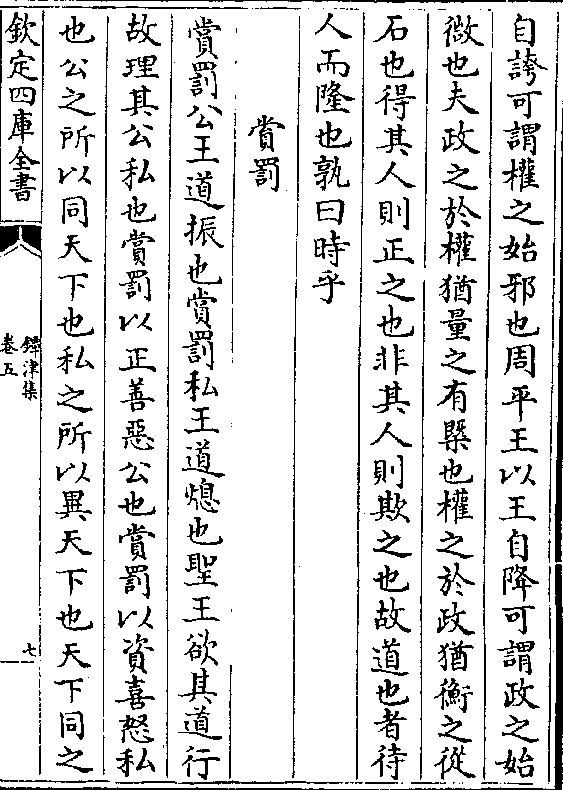 自誇可謂權之始邪也周平王以王自降可謂政之始
微也夫政之於權猶量之有槩也權之於政猶衡之從
石也得其人則正之也非其人則欺之也故道也者待
人而隆也孰曰時乎
賞罰
賞罰公王道振也賞罰私王道熄也聖王欲其道行
故理其公私也賞罰以正善惡公也賞罰以資喜怒私
也公之所以同天下也私之所以異天下也天下同之
欽定四庫全書
鐔津集
卷五
七